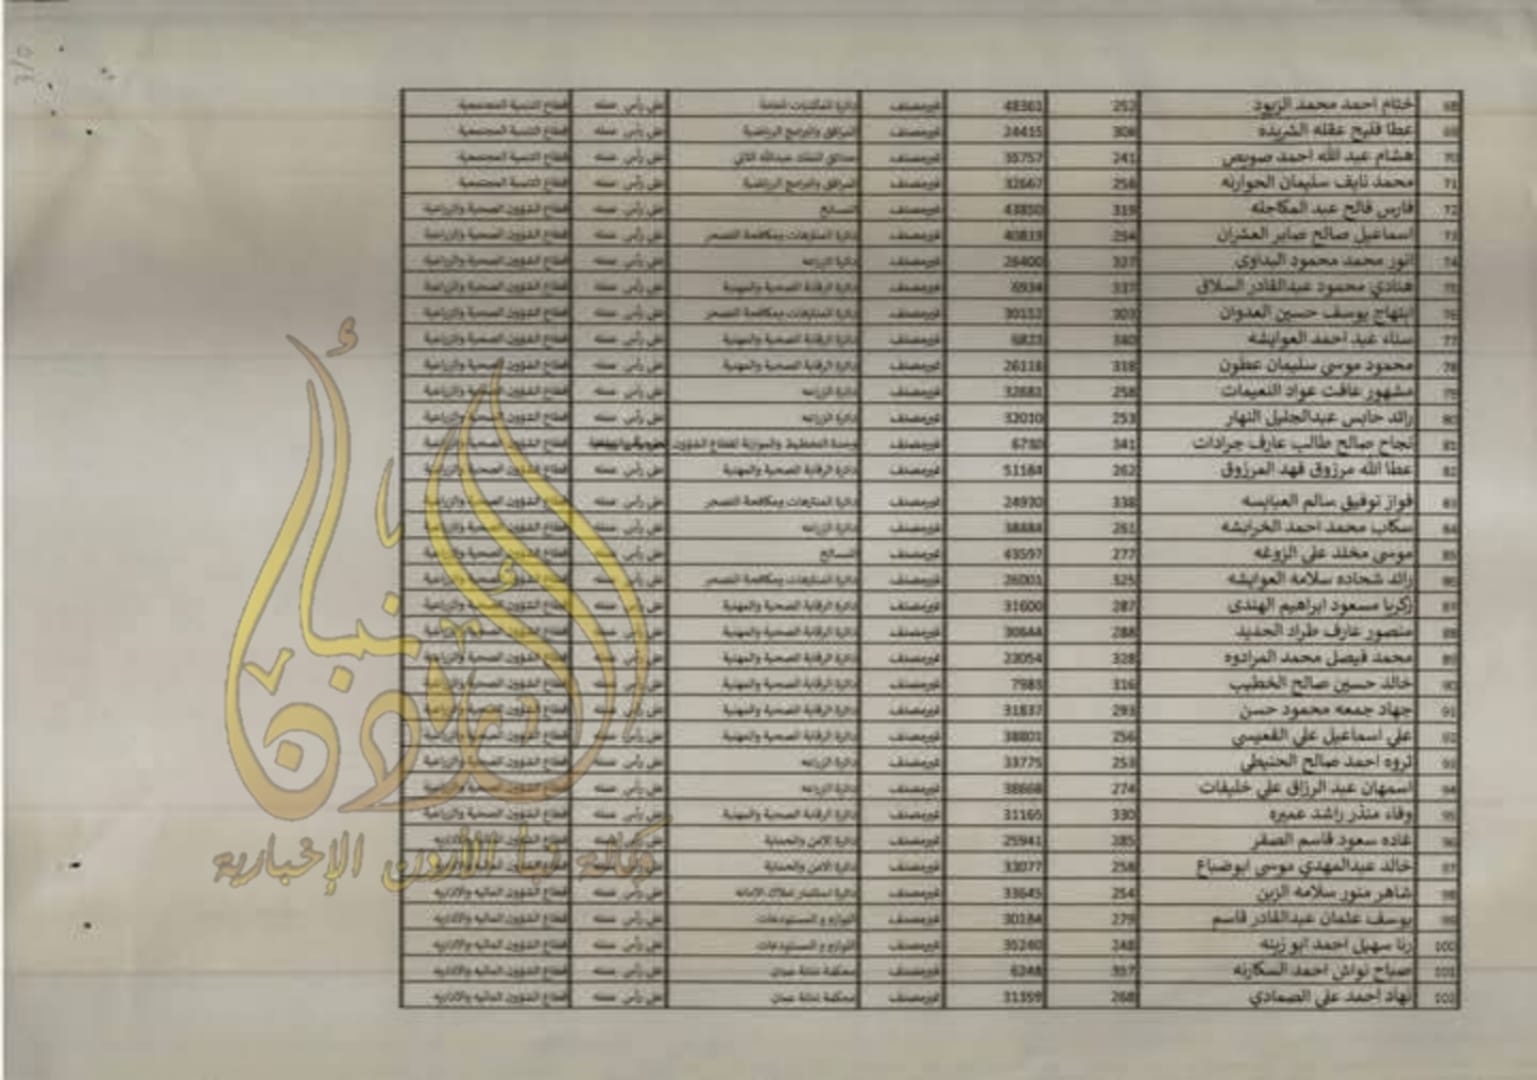 68 ختام احمد محمد الزيود 252 48361 غيرمصنف دائرة المكتبات العامة على رأس عمله قطاع التنمية المجتمعية
69 عطا فليح عقله الشريده 308 24415 غيرمصنف المرافق والبرامج الرياضية على رأس عمله قطاع التنمية المجتمعية
70 هشام عبد الله احمد صويص 241 35757 غيرمصنف حدائق الملك عبدالله الثاني على رأس عمله قطاع التنمية المجتمعية
71 محمد نايف سليمان الحوارنه 258 32667 غيرمصنف المرافق والبرامج الرياضية على رأس عمله قطاع التنمية المجتمعية
72 فارس فالح عبد المكاحله 319 43850 غيرمصنف المسالخ على رأس عمله قطاع الشؤون الصحية والزراعية
73 اسماعيل صالح صابر العشران 254 40819 غيرمصنف دائرة المتنزهات ومكافحة التصحر على رأس عمله قطاع الشؤون الصحية والزراعية
74 انور محمد محمود البداوى 327 26400 غيرمصنف دائرة الزراعه على رأس عمله قطاع الشؤون الصحية والزراعية
75 هنادي محمود عبدالقادر السلاق 337 6934 غيرمصنف دائرة الرقابة الصحية والمهنية على رأس عمله قطاع الشؤون الصحية والزراعية
76 ابتهاج يوسف حسين العدوان 303 30152 غيرمصنف دائرة المتنزهات ومكافحة التصحر على رأس عمله قطاع الشؤون الصحية والزراعية
77 سناء عيد احمد العوايشه 340 6823 غيرمصنف دائرة الرقابة الصحية والمهنية على رأس عمله قطاع الشؤون الصحية والزراعية
78 محمود موسى سليمان عطون 318 26118 غيرمصنف دائرة الرقابة الصحية والمهنية على رأس عمله قطاع الشؤون الصحية والزراعية
79 مشهور عافت عواد النعيمات 258 32681 غيرمصنف دائرة الزراعه على رأس عمله قطاع الشؤون الصحية والزراعية
80 رائد حابس عبدالجليل النهار 253 32010 غيرمصنف دائرة الزراعه على رأس عمله قطاع الشؤون الصحية والزراعية
81 نجاح صالح طالب عارف جرادات 341 6780 غيرمصنف وحدة التخطيط والموازنة لقطاع الشؤون قطاع الشؤون الصحية والزراعية
82 عطا الله مرزوق فهد المرزوق 262 51184 غيرمصنف دائرة الرقابة الصحية والمهنية على رأس عمله قطاع الشؤون الصحية والزراعية
83 فواز توفيق سالم العبابسه 338 24930 غيرمصنف دائرة المتنزهات ومكافحة التصحر على رأس عمله قطاع الشؤون الصحية والزراعية
84 سكاب محمد احمد الخرابشه 261 38884 غيرمصنف دائرة الزراعه على رأس عمله قطاع الشؤون الصحية والزراعية
85 موسى مخلد على الزوغه 277 43597 غيرمصنف المسالخ على رأس عمله قطاع الشؤون الصحية والزراعية
86 رائد شحاده سلامه العوايشه 325 26001 غيرمصنف دائرة المتنزهات ومكافحة التصحر على رأس عمله قطاع الشؤون الصحية والزراعية
87 زكريا مسعود ابراهيم الهندى 287 31600 غيرمصنف دائرة الرقابة الصحية والمهنية على رأس عمله قطاع الشؤون الصحية والزراعية
88 منصور عارف طراد الحديد 288 30644 غيرمصنف دائرة الرقابة الصحية والمهنية على رأس عمله قطاع الشؤون الصحية والزراعية
89 محمد فيصل محمد المرادوه 328 23054 غيرمصنف دائرة الرقابة الصحية والمهنية على رأس عمله قطاع الشؤون الصحية والزراعية
90 خالد حسين صالح الخطيب 316 7983 غيرمصنف دائرة الرقابة الصحية والمهنية على رأس عمله قطاع الشؤون الصحية والزراعية
91 جهاد جمعه محمود حسن 293 31837 غيرمصنف دائرة الرقابة الصحية والمهنية على رأس عمله قطاع الشؤون الصحية والزراعية
92 علي اسماعيل علي القعيسي 256 38801 غيرمصنف دائرة الرقابة الصحية والمهنية على رأس عمله قطاع الشؤون الصحية والزراعية
93 ثروه احمد صالح الحنيطي 253 33775 غيرمصنف دائرة الزراعه على رأس عمله قطاع الشؤون الصحية والزراعية
94 اسمهان عبد الرزاق علي خليفات 274 38668 غيرمصنف دائرة الزراعه على رأس عمله قطاع الشؤون الصحية والزراعية
95 وفاء منذر راشد عميره 330 31165 غيرمصنف دائرة الرقابة الصحية والمهنية على رأس عمله قطاع الشؤون الصحية والزراعية
96 غاده سعود قاسم الصقر 385 25941 غيرمصنف دائرة الامن والحماية على رأس عمله قطاع الشؤون الماليه والاداريه
97 خالد عبدالمهدي موسى ابوضباع 258 33077 غيرمصنف دائرة الامن والحماية على رأس عمله قطاع الشؤون الماليه والاداريه
98 شاهر منور سلامه الزبن 254 33645 غيرمصنف دائرة استثمار املاك الامانه على رأس عمله قطاع الشؤون الماليه والاداريه
99 يوسف عثمان عبدالقادر قاسم 279 30184 غيرمصنف اللوازم و المستودعات على رأس عمله قطاع الشؤون الماليه والاداريه
100 رنا سهيل احمد ابو زينه 248 35240 غيرمصنف اللوازم و المستودعات على رأس عمله قطاع الشؤون الماليه والاداريه
101 صباح نواش احمد السكارنه 357 6248 غيرمصنف محكمة امانة عمان على رأس عمله قطاع الشؤون الماليه والاداريه
102 نهاد احمد علي الصمادي 268 31359 غيرمصنف محكمة امانة عمان على رأس عمله قطاع الشؤون الماليه والاداريه
نبأ الأردن
وكالة نبأ الأردن الإخبارية